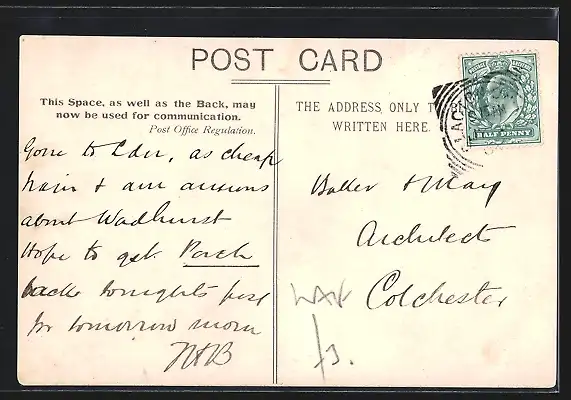 POST CARD
This Space, as well as the Back, may
now be used for communication.
Post Office Regulation.
THE ADDRESS ONLY TO BE
WRITTEN HERE.
HALF PENNY
Gone to Ldn, as cheap
train & am anxious
about Wadhurst
Hope to get Porch
back tonight's post
for tomorrow morn
Baker & May
Architects
Colchester